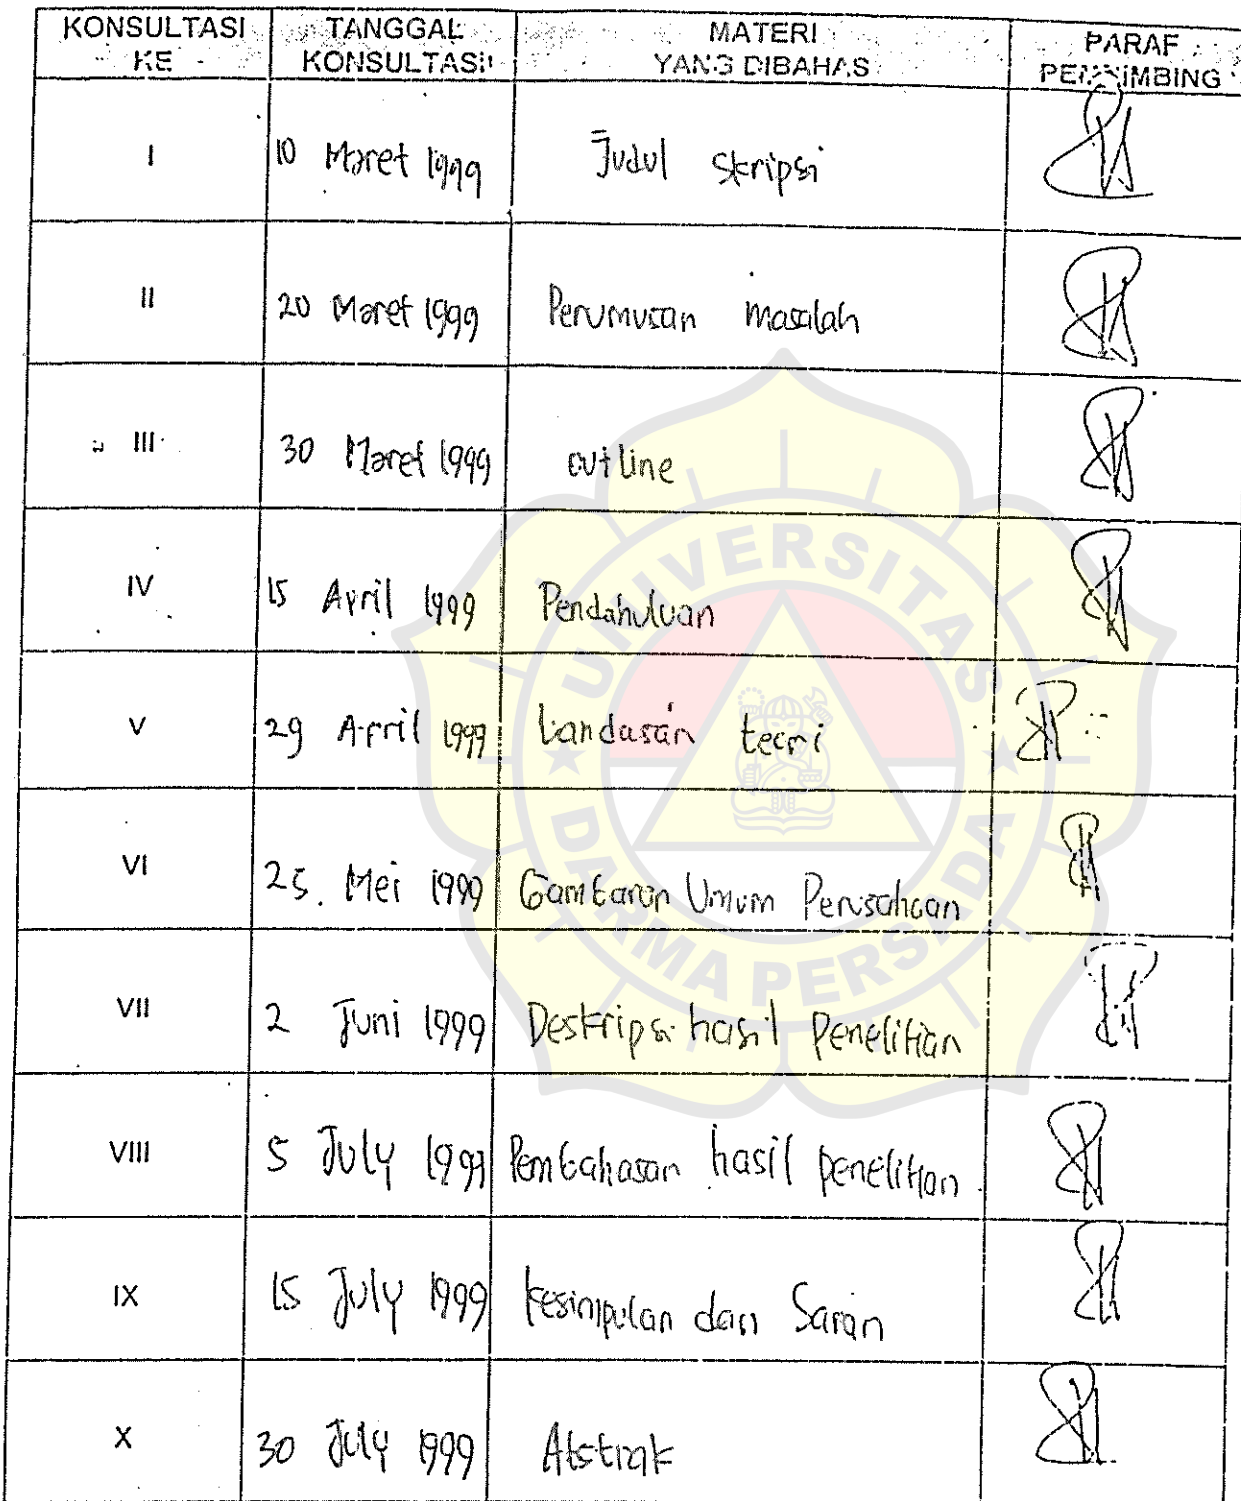 KONSULTASI KE
TANGGAL KONSULTASI
MATERI YANG DIBAHAS
PARAF PEMBIMBING
I 10 Maret 1999 Judul Skripsi
II 20 Maret 1999 Perumusan masalah
III 30 Maret 1999 outline
IV 15 April 1999 Pendahuluan
V 29 April 1999 Landasan teori
VI 25 Mei 1999 Gambaran Umum Perusahaan
VII 2 Juni 1999 Deskripsi hasil Penelitian
VIII 5 July 1999 Pembahasan hasil penelitian
IX 15 July 1999 Kesimpulan dan Saran
X 30 July 1999 Abstrak
UNIVERSITAS
DARMA PERSADA